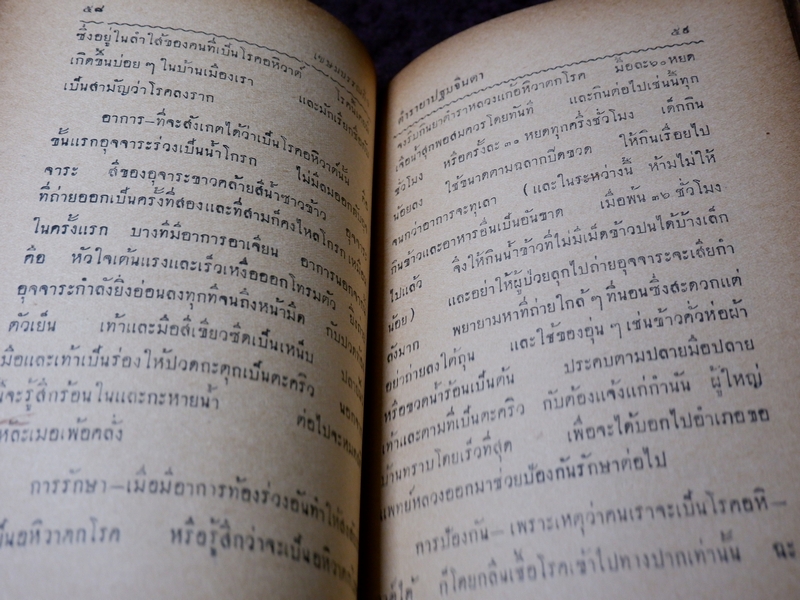 ๕๘
ซึ่งอยู่ในลำไส้ของคนที่เป็นโรคอหิวาต์
เกิดขึ้นบ่อย ๆ ในบ้านเมืองเรา และมักเรียก
เป็นสามัญว่าโรคลงราก
อาการ—ที่จะสังเกตได้ว่าเป็นโรคอหิวาต์นั้น
ขั้นแรกอุจจาระร่วงเป็นน้ำโกรก ไม่มีลม
จาระ สีของอุจาระขาวคล้ายสีน้ำซาวข้าว
ที่ถ่ายออกเป็นครั้งที่สองและที่สามก็คงไหลโกรก
ในครั้งแรก บางทีมีอาการอาเจียน อาการนอกจาก
คือ หัวใจเต้นแรงและเร็วเหงื่อออกโทรมตัว
อุจจาระกำลังยิ่งอ่อนลงทุกทีจนถึงหน้ามืด กับปวด
ตัวเย็น เท้าและมือสีเขียวซีดเป็นเหน็บ
มือและเท้าเป็นร่องให้ปวดกะตุกเป็นตะคริว นอกจาก
จะรู้สึกร้อนในและกะหายน้ำ ต่อไปจะ
เมอเพ้อคลั่ง
การรักษา—เมื่อมีอาการท้องร่วงอันทำให้
เป็นอหิวาตกโรค หรือรู้สึกว่าจะเป็นอหิวาตกโรค
๕๙
ตำรายาปฐมจินดา
จงรับกินยาตำราหลวงแก้อหิวาตกโรค มื้อละ ๖๐ หยด
เจือน้ำสุกพอสมควรโดยทันที และกินต่อไปเช่นนี้ทุก
ชั่วโมง หรือครั้งละ ๓๐ หยดทุกครึ่งชั่วโมง เด็กกิน
น้อยลง ใช้ขนาดตามฉลากปิดขวด ให้กินเรื่อยไป
จนกว่าอาการจะทุเลา (และในระหว่างนี้ ห้ามไม่ให้
กินข้าวและอาหารอื่นเป็นอันขาด เมื่อพ้น ๓๖ ชั่วโมง
ไปแล้ว จึงให้กินน้ำข้าวที่ไม่มีเม็ดข้าวปนได้บ้างเล็ก
น้อย) และอย่าให้ผู้ป่วยลุกไปถ่ายอุจจาระจะเสียกำ
ลังมาก พยายามหาที่ถ่ายใกล้ ๆ ที่นอนซึ่งสะดวกแต่
อย่าถ่ายลงใต้ถุน และใช้ของอุ่น ๆ เช่นข้าวคั่วห่อผ้า
หรือขวดน้ำร้อนเป็นต้น ประคบตามปลายมือปลาย
เท้าและตามที่เป็นตะคริว กับต้องแจ้งแก่กำนัน ผู้ใหญ่
บ้านทราบโดยเร็วที่สุด เพื่อจะได้บอกไปอำเภอขอ
แพทย์หลวงออกมาช่วยป้องกันรักษาต่อไป
การป้องกัน—เพราะเหตุว่าคนเราจะเป็นโรคอหิ—
ก็โดยกลืนเชื้อโรคเข้าไปทางปากเท่านั้น ฉะ